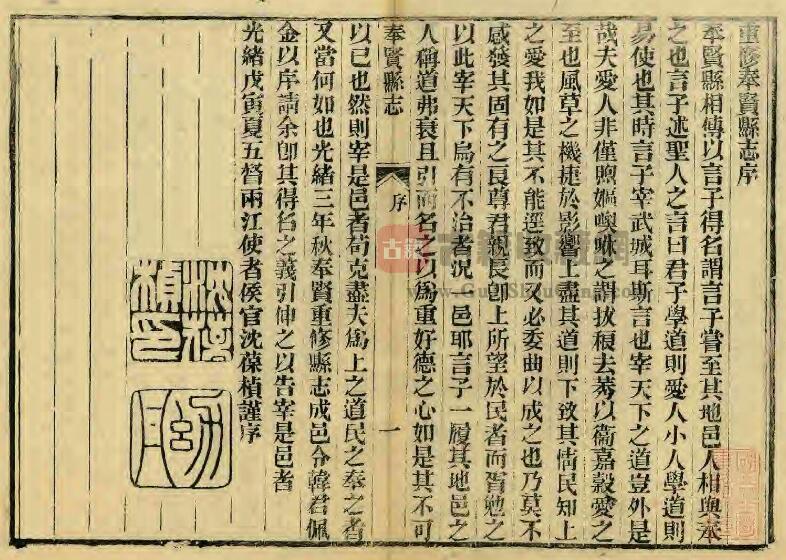 重修奉賢縣志序
奉賢縣相傳以言子得名謂言子嘗至其地邑人相與奉
之也言子述聖人之言曰君子學道則愛人小人學道則
易使也其時言子宰武城耳斯言也宰天下之道豈外是
哉夫愛人非僅煦嫗噢咻之謂拔根去莠以衞嘉穀愛之
至也風草之機捷於影響上盡其道則下致其情民知上
之愛我如是其不能逕致而又必委曲以成之也乃莫不
感發其固有之良尊君親長卽上所望於民者而胥勉之
以此宰天下烏有不治者況一邑耶言子一履其地邑之
人稱道弗衰且引而名之以爲重好德之心如是其不可
奉賢縣志
序
一
以已也然則宰是邑者苟克盡夫爲上之道民之奉之者
又當何如也光緒三年秋奉賢重修縣志成邑令韓君佩
金以序請余卽其得名之義引伸之以告宰是邑者
光緒戊寅夏五督兩江使者侯官沈葆楨謹序
沈葆楨印
古籍